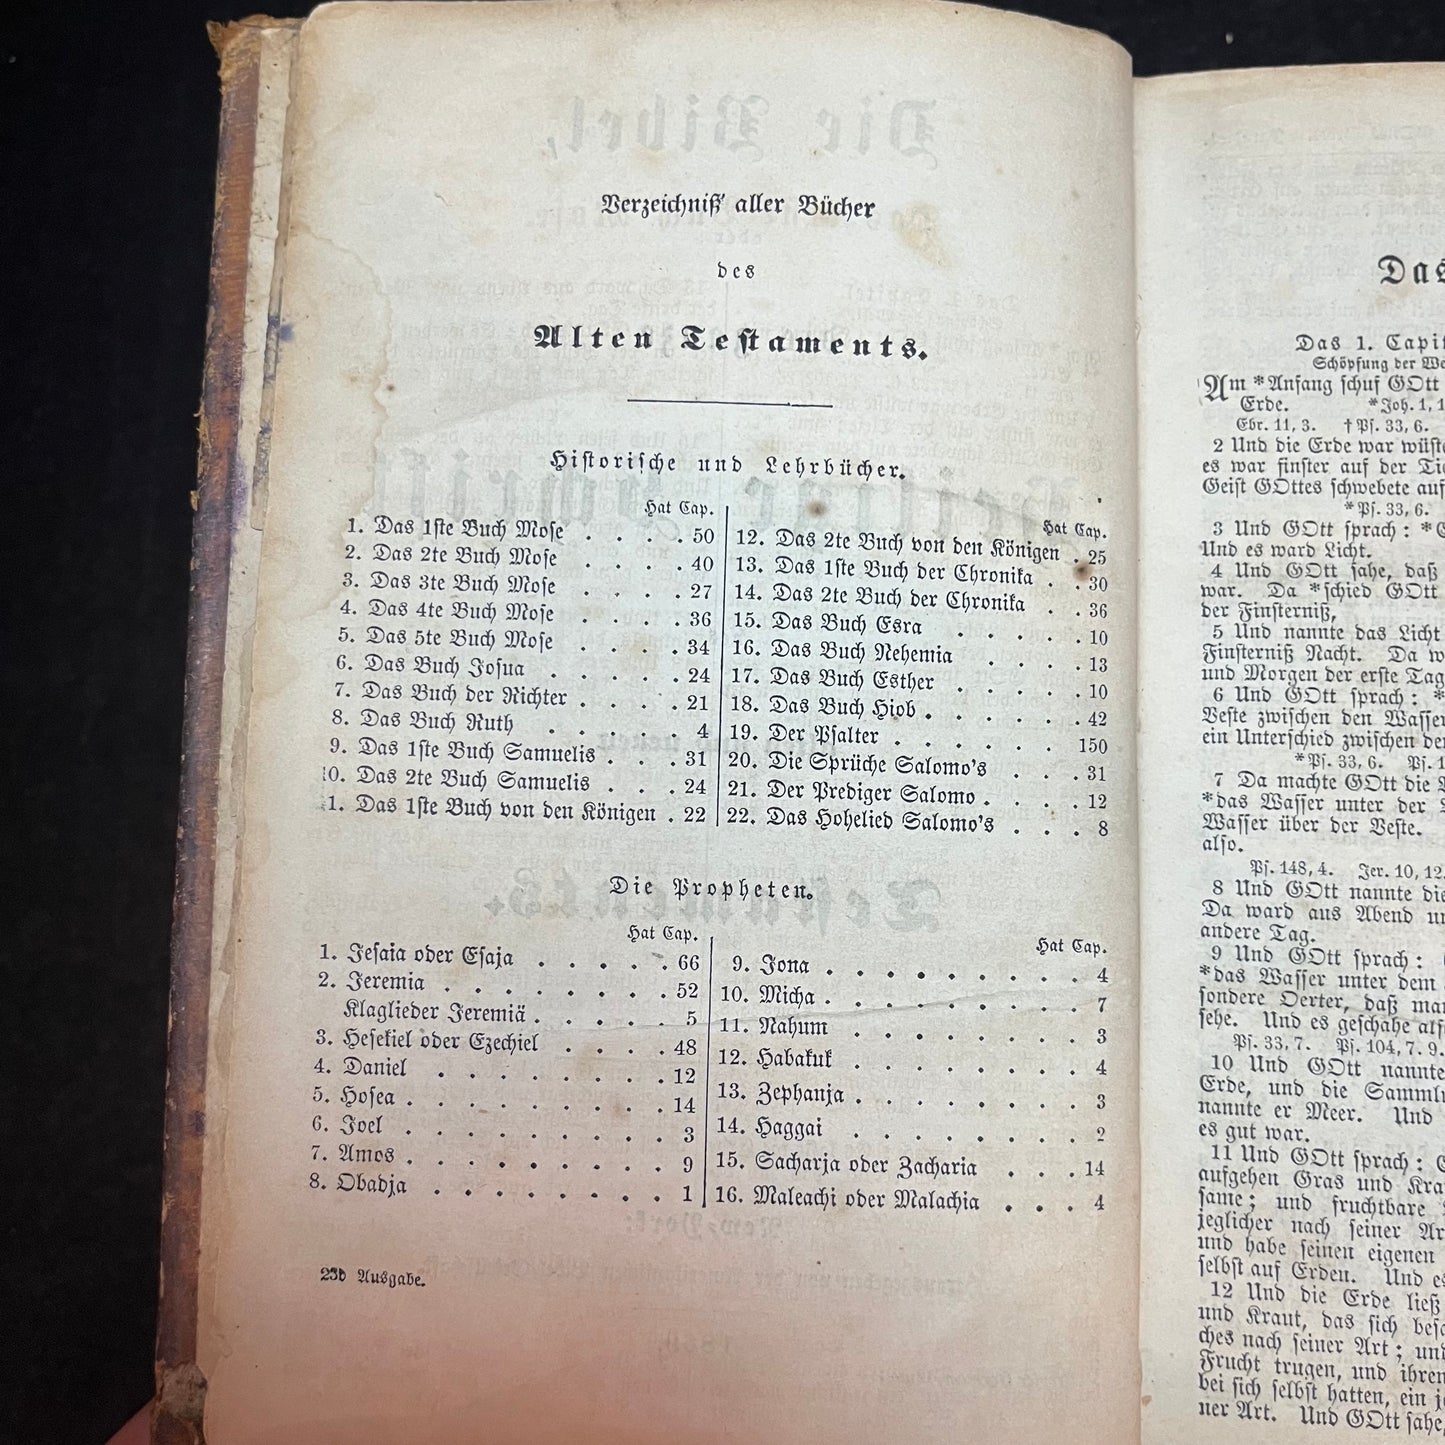 Verzeichniß aller Bücher
des
Alten Testaments.
Historische und Lehrbücher.
Hat Cap.
1. Das 1ste Buch Mose . . . . 50
2. Das 2te Buch Mose . . . . 40
3. Das 3te Buch Mose . . . . 27
4. Das 4te Buch Mose . . . . 36
5. Das 5te Buch Mose . . . . 34
6. Das Buch Josua . . . . 24
7. Das Buch der Richter . . . . 21
8. Das Buch Ruth . . . . 4
9. Das 1ste Buch Samuelis . . . . 31
10. Das 2te Buch Samuelis . . . . 24
11. Das 1ste Buch von den Königen . 22
Hat Cap.
12. Das 2te Buch von den Königen . 25
13. Das 1ste Buch der Chronika . . 30
14. Das 2te Buch der Chronika . . 36
15. Das Buch Esra . . . . . 10
16. Das Buch Nehemia . . . . 13
17. Das Buch Esther . . . . . 10
18. Das Buch Hiob . . . . . . 42
19. Der Psalter . . . . . . 150
20. Die Sprüche Salomo's . . . 31
21. Der Prediger Salomo . . . . 12
22. Das Hohelied Salomo's . . . 8
Die Propheten.
Hat Cap.
1. Jesaia oder Esaja . . . . . 66
2. Jeremia . . . . . . . . 52
Klaglieder Jeremiä . . . . . 5
3. Hesekiel oder Ezechiel . . . . 48
4. Daniel . . . . . . . . 12
5. Hosea . . . . . . . . . 14
6. Joel . . . . . . . . . 3
7. Amos . . . . . . . . . 9
8. Obadja . . . . . . . . 1
Hat Cap.
9. Jona . . . . . . . . . 4
10. Micha . . . . . . . . . 7
11. Nahum . . . . . . . . 3
12. Habakuk . . . . . . . . 4
13. Zephanja . . . . . . . . 3
14. Haggai . . . . . . . . 2
15. Sacharja oder Zacharia . . . 14
16. Maleachi oder Malachia . . . 4
23b Ausgabe.
Das
Das 1. Capit
Schöpfung der We
Am *Anfang schuf GOtt
Erde. *Joh. 1, 1
Ebr. 11, 3. †Ps. 33, 6.
2 Und die Erde war wüste
es war finster auf der Tie
Geist GOttes schwebete auf
*Ps. 33, 6.
3 Und GOtt sprach: *
Und es ward Licht.
4 Und GOtt sahe, daß
war. Da *schied GOtt
der Finsterniß,
5 Und nannte das Licht
Finsterniß Nacht. Da w
und Morgen der erste Tag
6 Und GOtt sprach: *
Veste zwischen den Wasser
ein Unterschied zwischen de
*Ps. 33, 6. Ps. 1
7 Da machte GOtt die V
*das Wasser unter der
Wasser über der Veste.
also.
Ps. 148, 4. Jer. 10, 12.
8 Und GOtt nannte die
Da ward aus Abend un
andere Tag.
9 Und GOtt sprach:
*das Wasser unter dem
sondere Oerter, daß man
sehe. Und es geschahe als
Ps. 33, 7. Ps. 104, 7. 9.
10 Und GOtt nannte
Erde, und die Sammlu
nannte er Meer. Und
es gut war.
11 Und GOtt sprach: E
aufgehen Gras und Kra
same; und fruchtbare
jeglicher nach seiner Ar
und habe seinen eigenen
selbst auf Erden. Und es
12 Und die Erde ließ
und Kraut, das sich beso
ches nach seiner Art; und
Frucht trugen, und ihren
bei sich selbst hatten, ein j
ner Art. Und GOtt sahe,